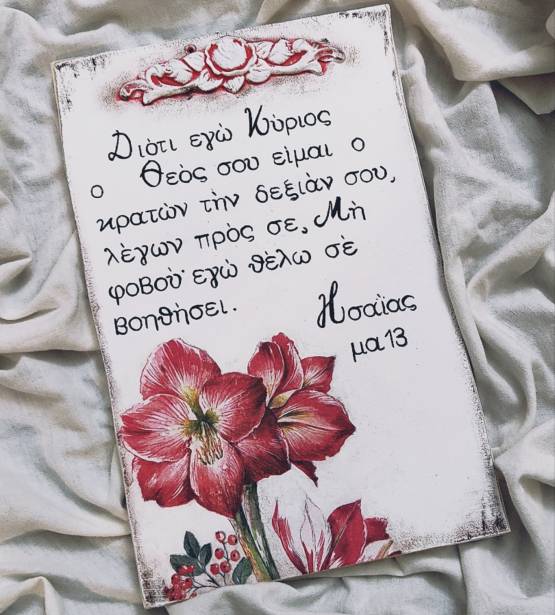 Διὸτι εγὼ Κὺριος
ο Θεὸς σου εὶμαι ο
κρατὼν τὴν δεξιὰν σου,
λὲγων πρὸς σε, Μὴ
φοβοὺ· εγὼ θὲλω σὲ
βοηθὴσει.
Ησαϊας
μα 13